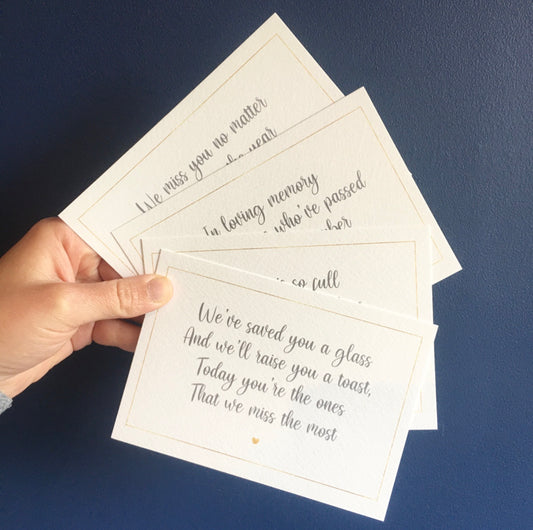 We miss you no matter
year
In loving memory
who've passed
is so full
We've saved you a glass
And we'll raise you a toast,
Today you're the ones
That we miss the most